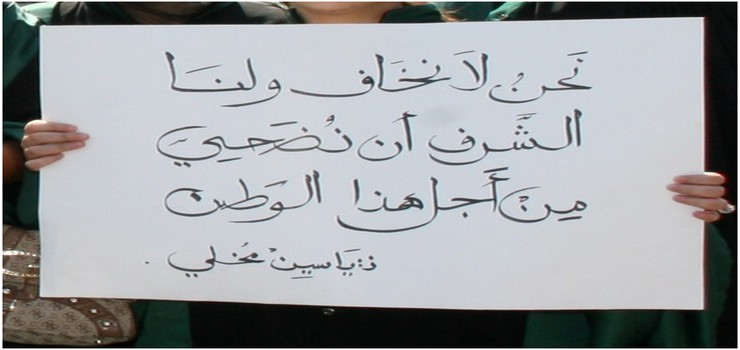 نَحنُ لاَ نخَاف ولنَا
الشَّرف أن نُضَحِيَّ
مِنْ أَجل هذا الوَطن
ذ: ياسِينْ مُخلي .